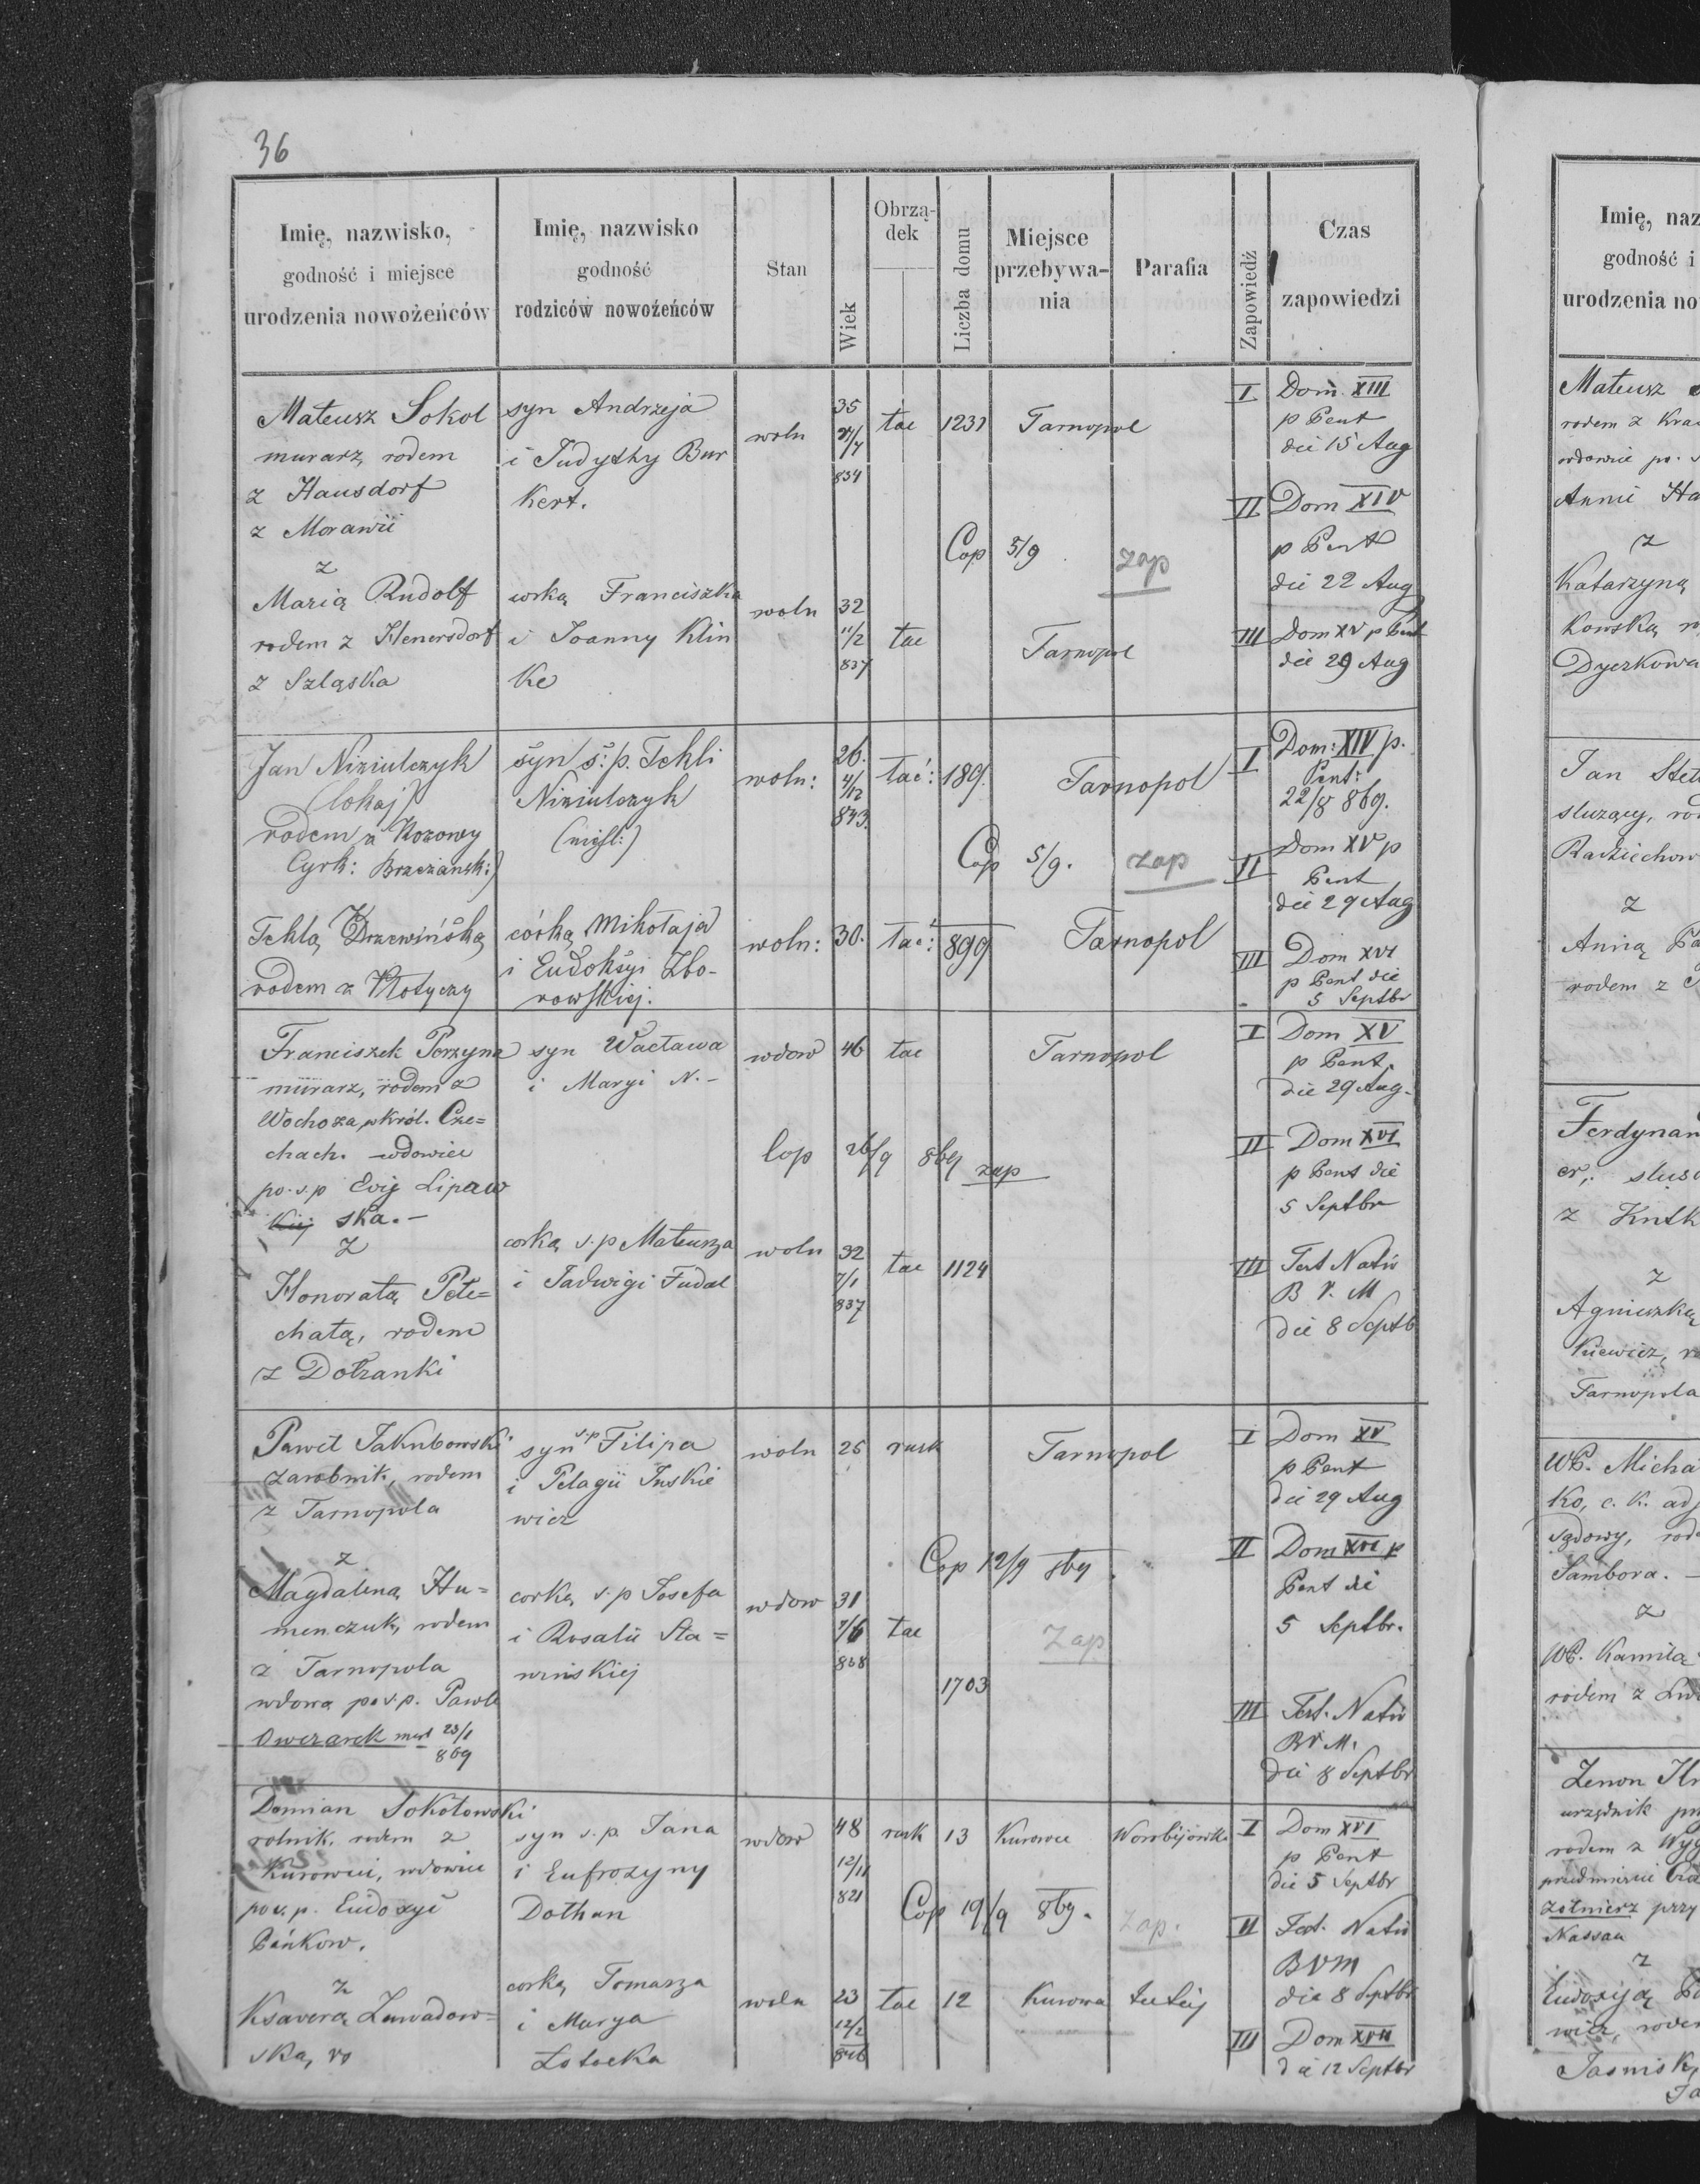 36
Imię, nazwisko,
godność i miejsce
urodzenia nowożeńców
Imię, nazwisko
godność
rodziców nowożeńców
Stan
Wiek
Obrzą-
dek
Liczba domu
Miejsce
przebywa-
nia
Parafia
Zapowiedź
Czas
zapowiedzi
Mateusz Sokol
murarz, rodem
z Hausdorf
z Morawii
z
Marią Rudolf
rodem z Henersdorf
z Szląska
syn Andrzeja
i Judythy Bur
kert.
corką Franciszka
i Joanny Klin
ke
woln
35
834
łac
1231
Tarnopol
Cop 5/9
zap
woln
32
11/2
837
łac
Tarnopol
I Dom XIII
p Pent
die 15 Aug
II Dom XIV
p Pent
die 22 Aug
III Dom XV p Pent
die 29 Aug
Jan Niziulczyk
(lokaj)
rodem z Kozowy
Cyrk: Brzeżansk:)
z
Teklą Drzewińską
rodem z Płotyczy
syn ś:p. Tekli
Niziulczyk
(nieśl:)
córką Mikołaja
i Eudoksyi Zbo-
rowskiej.
woln:
26.
4/12
843.
łać:
189.
Tarnopol
Cop 5/9.
zap
woln:
30.
łać:
899
Tarnopol
I Dom: XIV p.
Pent:
22/8 869.
II Dom XV p
Pent
die 29 Aug
III Dom XVI
p Pent die
5 Septbr
Franciszek Perzyna
murarz, rodem z
Wochoza, w król. Cze=
chach. wdowiec
po ś.p Ewij Lipaw
kiej ska. -
z
Honoratą Pete=
chatą, rodem
z Dołzanki
syn Wacława
i Maryi N. -
corką ś.p Mateusza
i Jadwigi Fudal
wdow
46
łac
Tarnopol
Cop 26/9 869
zap
woln
32
7/1
837
łac
1124
I Dom XV
p Pent.
die 29 Aug.
II Dom XVI
p Pent die
5 Septbr
III Fest Nativ
B V. M
die 8 Septb
Paweł Jakubowski
zarobnik, rodem
z Tarnopola
z
Magdaleną Hu=
menczuk, rodem
z Tarnopola
wdowa po ś.p. Pawle
Owczarek mort 23/1
869
syn ś.p Filipa
i Pelagii Juskie
wicz
corką ś.p Josefa
i Rosalii Sta=
winskiej
woln
25
rusk
Tarnopol
Cop 12/9 869
wdow
31
7/6
838
łac
1703
Zap
I Dom XV
p Pent
die 29 Aug
II Dom XVI p
Pent die
5 Septbr.
III Fest. Nativ
BV M.
die 8 Septbr
Damian Sokołowski
rolnik, rodem z
Kurowiec, wdowiec
po ś.p. Eudoxyi
Pańkow.
z
Ksawerą Zawadow=
ska, ro
syn ś.p. Jana
i Eufrozyny
Dothan
corką Tomasza
i Marya
Zotocka
wdow
48
12/11
821
rusk
13
Kurowce
Cop 19/9 869.
zap.
woln
23
12/2
846
łac
12
tutej
I Dom XVI
p Pent
die 5 Septbr
II Fest. Nativ
BVM
die 8 Septbr
III Dom XVII
die 12 Septbr
Imię, naz
godność i
urodzenia no
Mateusz
rodem z Kra
z
Katarzyną
kowską
Dyczkowa
Jan
służący,
Radziechow
z
Anną
rodem z
Ferdynan
z
Agnieszką
Tarnopola
WP. Micha
ko, c. k. adj
sądowy, rod
Sambora. -
z
WP. Kamilą
rodem z Lw
Zenon
urzędnik
rodem z
przedmieście
żołnierz przy
Nassau
z
Eudoxyją
wicz, rodem